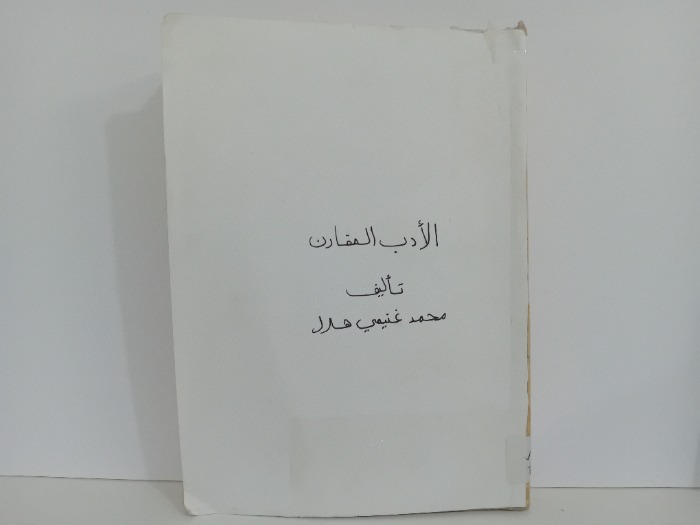 الأدب المقارن
تأليف
محمد غنيمي هلال